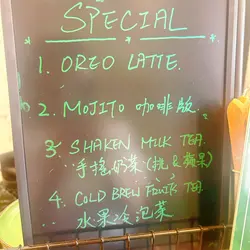 SPECIAL
1. OREO LATTE.
2. MOJITO 咖啡版.
3. SHAKEN MILK TEA.
手搖奶茶(桃&蘋果)
4. COLD BREW FRUITS TEA.
水果冷泡茶